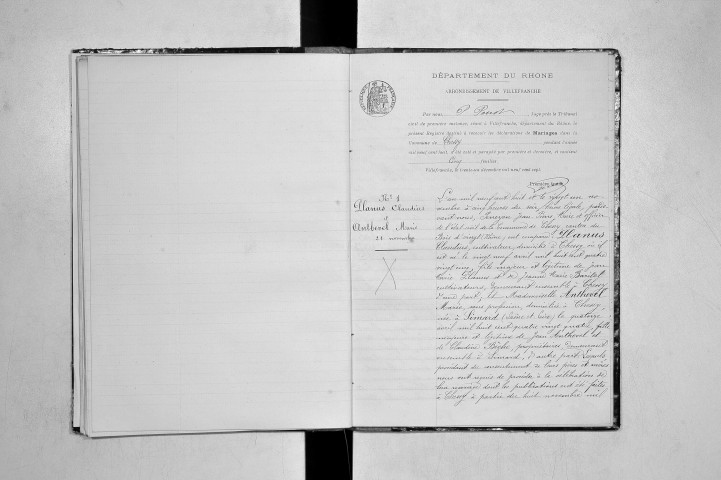 DÉPARTEMENT DU RHONE
ARRONDISSEMENT DE VILLEFRANCHE
Par nous, Juge près le Tribunal
civil de première instance, séant à Villefranche, département du Rhône, le
présent Registre destiné à recevoir les déclarations de Mariages dans la
Commune de Chessy pendant l'année
mil neuf cent huit, a été coté et paraphé par première et dernière, et contient
Cinq feuilles
Villefranche, le trente-un décembre mil neuf cent sept.
Première feuille
N° 1
Planus Claudius
et
Anthevel Marie
21 novembre
L'an mil neuf cent huit et le vingt un no-
vembre à onze heures du soir, heure légale, par de-
vant nous, Jean Pierre, Maire et officier
de l'état civil de la Commune de Chessy, canton du
Bois d'oingt, Rhône; ont comparu Planus
Claudius, cultivateur, domicilié à Chessy où il
est né le vingt neuf avril mil huit cent quatre
vingt neuf, fils majeur et légitime de Jean
Marie Planus et de Jeanne Marie
cultivateurs, demeurant ensemble à Chessy
d'une part; et Mademoiselle Anthevel
Marie, sans profession, domiciliée à Chessy
née à Simard (Saône et Loire) le quatorze
avril mil huit cent quatre vingt quatre, fille
majeure et légitime de Jean Anthevel et
de Claudine propriétaires demeurant
ensemble à Simard, d'autre part. Lesquels
procédant du consentement de leurs pères et mères
nous ont requis de procéder à la célébration de
leur mariage dont les publications ont été faites
à Chessy à partir du huit novembre mil